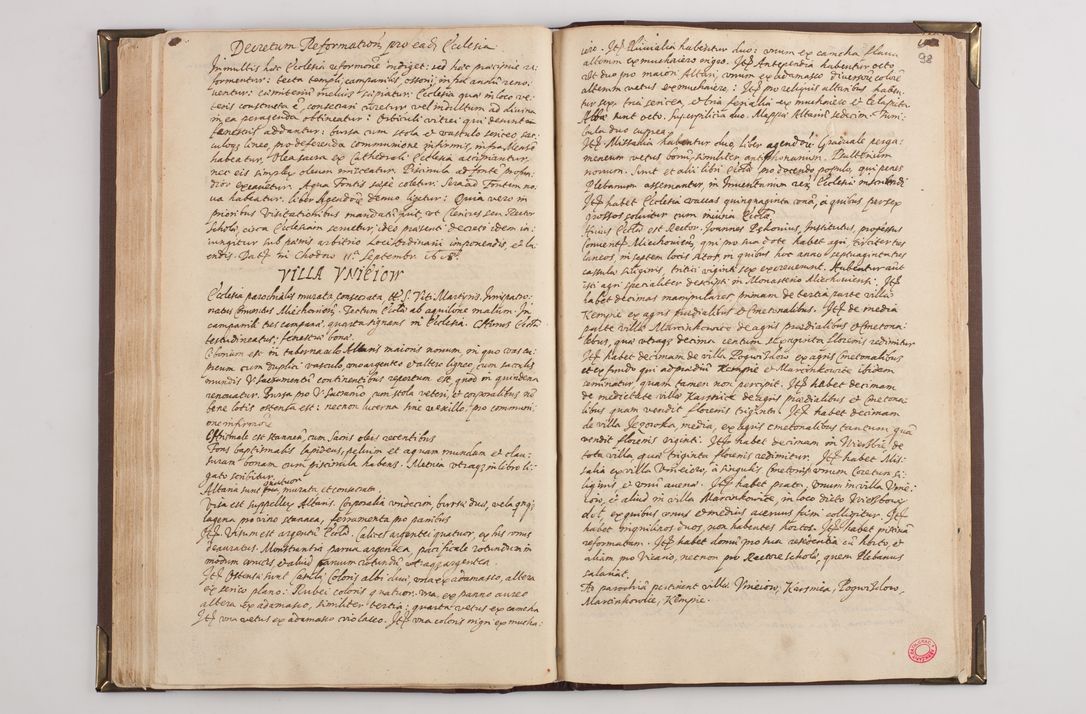 Decretum Reformationis pro eade Ecclesia
In multis hoc Ecclesia reformone indiget: sed hoc praecipue re:
formentur: tecta templi, campanilis, ossorii, infra annum reno:
uentur: coemiterium melius sepiatur: Ecclesia quia in loco ve:
teris constructa e, consecrari curetur vel indultum ad diuina
in ea peragenda obtineatur: Orbiculi vitrei qui desunt in
fenestris addantur: bursa cum stola et vasculo sericeo sac:
culoq lineo, pro deferenda communione infirmis, infra Mense
habeatur, Olea sacra ex Cathedrali Ecclesia accipiantur,
nec eis simplex oleum misceatur. Piscinula ad fonte profun:
dior excauetur. Aqua Fontis saepe coletur: Sera ad Fontem no:
ua habeatur. liber Agendoru denuo ligetur: Quia vero in
prioribus Visitationibus mandatu fuit, vt Censores seu Rector
Scholae, circa Ecclesiam seruetur, ideo praesenti decreto idem in:
iungitur sub paenis arbitrio loci Ordinarii imponendis, et la:
endis. Dat in Chodow 11 Septembr 1618
VILLA VNIEIOW
Ecclesia parochialis murata consecrata tt S. Viti Martyris. Iurispatro:
natus Conuentus Miechouien. Tectum Ecclae ab aquilone malum. In
campanili tres campanae, quarta signans in Ecclesia. Chorus Ecclae
testudineatus, fenestrae bonae.
Ciborium est in tabernaculo Altaris maioris nouum, in quo vas cu:
preum cum duplici vasculo, uno argenteo et altero ligneo, cum sacculis
mundis V. Sacramentu continentibus repertum est, quod in quindena
renouatur. Bursa pro V. Sacramento cum stola veteri, et corporalibus no
bene lotis ostensa est: necnon lucerna sine vexillo, pro communi:
one infirmorum
Chrismale est stanneu, cum Sacris oleis recentibus
Fons baptismalis lapideus, peluim et aquam mundam et clau:
suram bonam cum piscinula habens. Metrica vtraq in libro li:
gato scribitur.
Altaria sunt quatuor murata et consecrata.
Visa est suppellex Altaris. Corporalia vndecim, bursae duae, vela quinq
lagena pro vino stannea, ferramenta pro panibus
Ite Visum est argentu Ecclae. Calices argentei quatuor, ex his vnus
deauratus. Monstrantia parua argentea, pacificale rotundum in
modum crucis et aliud paruum rotundu, vtraq argentea.
Ite Ostensae sunt Casulae Coloris albi duae, vna ex adamasco, altera
ex serico plano: Rubei coloris quatuor, vna ex panno aureo
altera ex adamasco, similiter tertia: quarta vetus ex camcha
Ite vna vetus ex adamasco violaceo. Ite vna coloris nigri ex mucha:
98
iero. Ite Pluuialia habentur duo: vnum ex camcha flauu
alterum ex muchaiero nigro. Ite Antependia habentur octo
vt duo pro maiori Altari, vnum ex adamasco diuersoru coloru
alterum vetus ex muchaiero: Ite pro reliquis altaribus haben:
tur sex, tria sericea, et tria ferialia ex muchaiero et tela picta.
Albae sunt octo. Superpellicia duo. Mappae Altariu sedecim. Turri:
bula duo cuprea
Ite Missalia habentur duo, liber agendoru Graduale perga:
meneum vetus bonu, similiter antiphonarium. Psalterium
nouum. Sunt et alii libri Ecclae pro docendo populo, qui penes
Plebanum asseruantur, in Inuentarium reru Ecclesiae inscribendi
Ite habet Ecclesia vaccas quinquaginta vna, a quibus per sex
grossos soluitur cum iniuria Ecclae
Huius Ecclae est Rector Ioannes Rzhonius, Institutus, professus
Conuentus Miechouien, qui pro sua dote habet agri circiter tres
laneos, in septem locis sitos, in quibus hoc anno septuaginta tres
cassulae siliginis, tritici viginti sex excreuerunt. Habentur aut
isti agri specialiter descripti in Monasterio Miechouiensi. Ite
habet decimas manipulares primam de tertia parte villae
Kempie ex agris praedialibus et Cmetonalibus. Ite de media
parte villae Marcinkowice de agris praedialibus et Cmetona:
libus, quae vtraq decima centum sexaginta florenis redimitur
Ite habet decimam de villa Pogwizdow ex agris Cmetonalibus
et ex fundo qui ad praediu Kempie et Marcinkowice ibidem
seminatur, quam tamen non percipit. Ite habet decimam
de medietate villae Karsnice de agris praedialibus et Cmetona:
libus quam vendit florenis triginta. Ite habet decimam
de villa Iezowka media, ex agris cmetonalibus tantum, qua
vendit florenis viginti. Ite habet decimam in Wierzbie de
tota villa, quae triginta florenis redimitur. Ite habet Mis:
salia ex villa Vnieiow, a singulis Cmetonibus vnum Coretum si:
liginis, et vnu auenae. Ite habet prata, vnum in villa Vnie:
iow, et aliud in villa Marcinkowice, in loco dicto Wierzbowy
dol, ex quibus vnus et medius aceruus foeni colligitur. Ite
habet inquilinos duos, non habentes hortos. Ite habet piscina
reformatam. Ite habet domu pro sua residentia cu horto, et
aliam pro Vicario, necnon pro Rectore Scholae, quem Plebanus
salariat.
Ad parochia pertinent villae: Vnieiow, Karsnica, Pogwizdow,
Marcinkowice, Kempie.